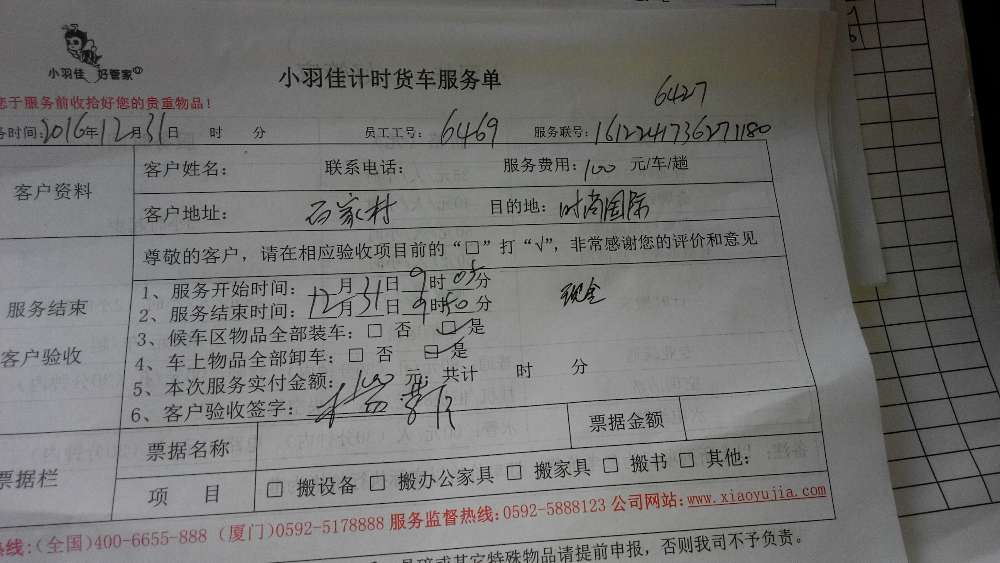 小羽佳 好管家
小羽佳计时货车服务单
您于服务前收拾好您的贵重物品!
6427
务时间:2016年12月31日 时 分 员工工号: 6469 服务联号: 1612241736271180
客户资料
客户姓名: 联系电话: 服务费用: 100 元/车/趟
客户地址: 石家村 目的地: 时尚国际
尊敬的客户，请在相应验收项目前的“□”打“√”，非常感谢您的评价和意见
服务结束
客户验收
1、服务开始时间: 月 日 9时05分
现金
2、服务结束时间: 12月31日 9时50分
3、候车区物品全部装车: □ 否 □ 是
4、车上物品全部卸车: □ 否 □ 是
5、本次服务实付金额: 100 元,共计 时 分
6、客户验收签字:
票据栏
票据名称 票据金额
项 目 □ 搬设备 □ 搬办公家具 □ 搬家具 □ 搬书 □ 其他:
热线:(全国)400-6655-888 (厦门)0592-5178888 服务监督热线:0592-5888123 公司网站:www.xiaoyujia.com
易碎或其它特殊物品请提前申报，否则我司不予负责。